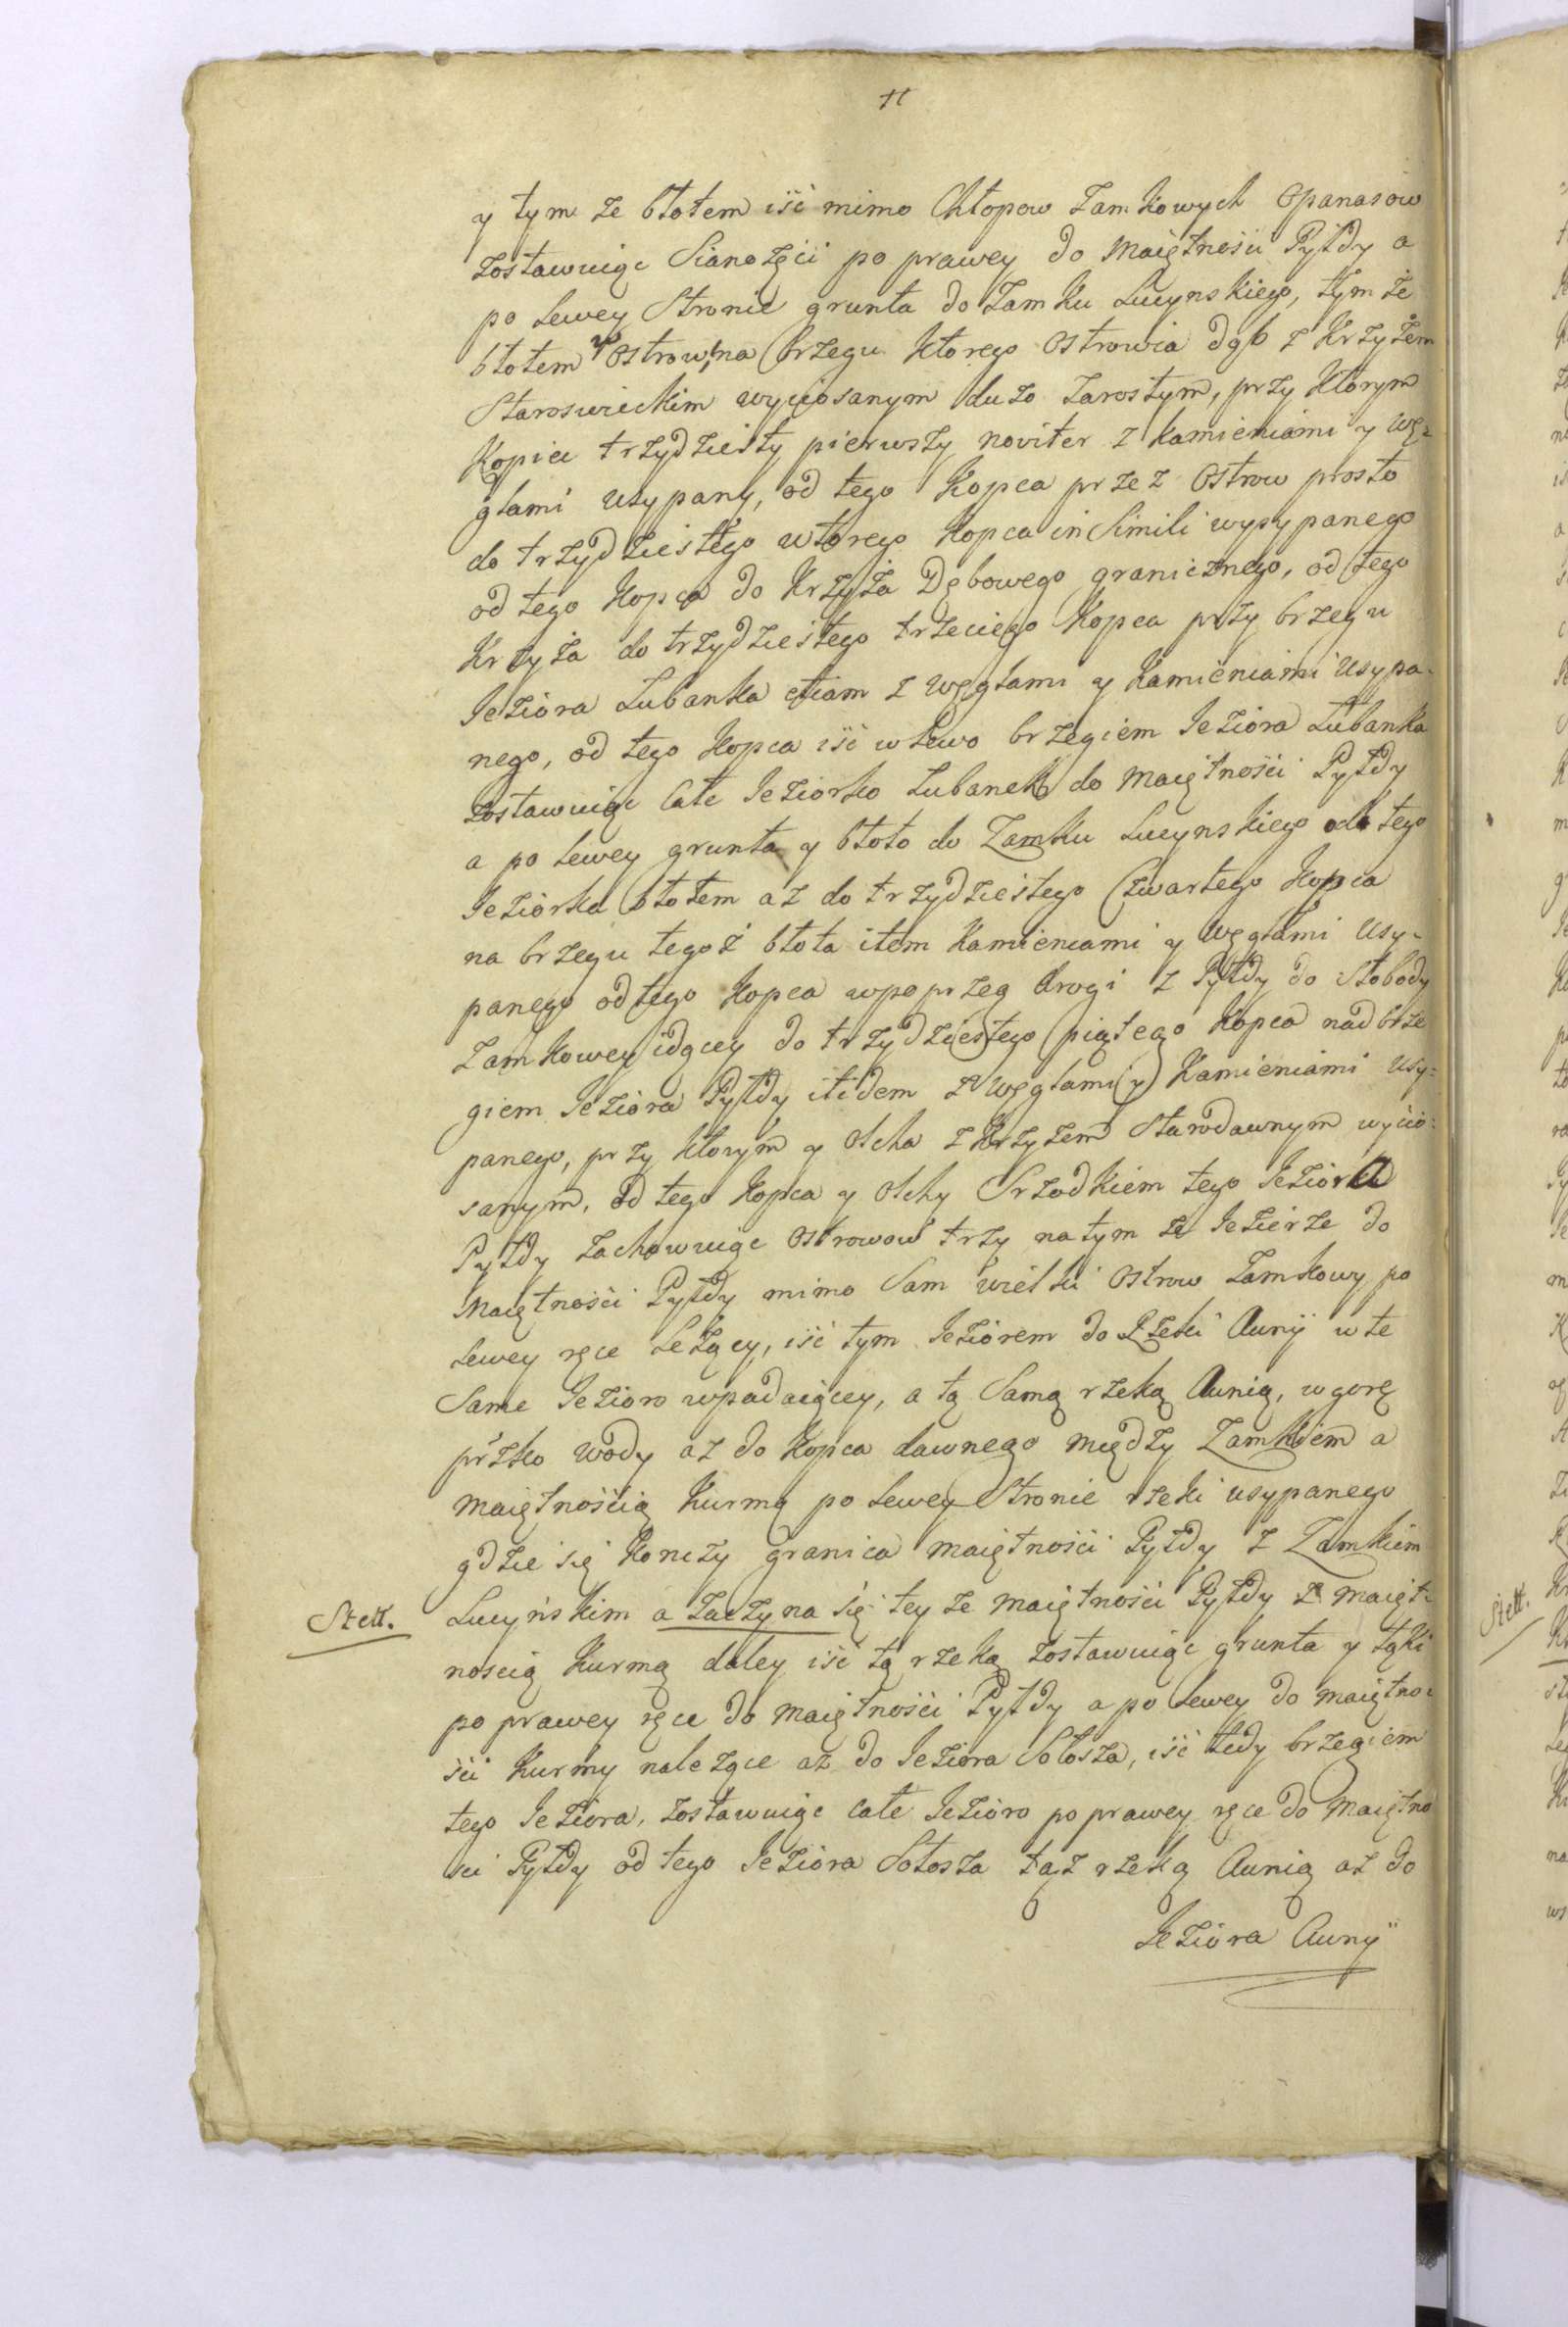 11
y tym ze błotem iść mimo Chłopow Zamkowych Opanasow
zostawuiąc Sianożęci po prawey do Maiętnosci Pyłdy a
po Lewey Stronie grunta do Zamku Lucynskiego, tym że
błotem w Ostrow, na brzegu ktorego Ostrowia dąb z Krzyżem
Staroswieckim wyciosanym dużo Zarostym, przy ktorym
Kopiec trzydziesty pierwszy noviter z kamieniami y wę-
glami usypany, od tego Kopca przez Ostrow prosto
do trzydziestego wtorego Kopca in Simili wysypanego
od tego Kopca do Krzyża Dębowego granicznego, od tego
Krzyża do trzydziestego trzeciego Kopca przy brzegu
Jeziora Lubanka etiam z węglami y Kamieniami usypa-
nego, od tego Kopca iść w Lewo brzegiem Jeziora Lubanka
zostawuiąc Całe Jeziorko Lubanek do Maiętności Pyłdy
a po Lewey grunta y błoto do Zamku Lucynskiego od tego
Jeziorka błotem aż do trzydziestego Czwartego Kopca
na brzegu tegoż błota item Kamieniami y węglami Usy-
panego od tego Kopca wpoprzeg drogi z Pyłdy do Słobody
Zamkowey idącey do trzydziestego piątego Kopca nad brze
giem Jeziora Pyłdy itidem z węglami y Kamieniami usy-
panego, przy ktorym y Olcha z Krzyżem Starodawnym wycio-
sanym, od tego Kopca y Olchy Srzodkiem tego Jeziora
Pyłdy zachowuiąc Ostrowow trzy na tym że Jezierze do
Maiętności Pyłdy mimo Sam wielki Ostrow Zamkowy po
Lewey ręce Leżący, iść tym Jeziorem do Rzeki Auny w te
Same Jezioro wpadaiącey, a tą Samą rzeką Aunią, w gorę
przko wody aż do Kopca dawnego między Zamkiem a
Maiętnością Kurmą po Lewey Stronie rzeki usypanego
gdzie się Konczy granica maiętności Pyłdy z Zamkiem
Stett. Lucyńskim a Zaczyna się tey że maiętności Pyłdy z maięt-
noscią Kurmą daley iść tą rzeką zostawuiąc grunta y łąki
po prawey ręce do maiętności Pyłdy a po Lewey do maiętno-
ści Kurmy należące aż do Jeziora Sołosza, iść tedy brzegiem
tego Jeziora, zostawuiąc całe Jezioro po prawey ręce do Maiętno
ści Pyłdy od tego Jeziora Sołosza tąż rzeką Aunią aż do
Jeziora Auny
Stett.